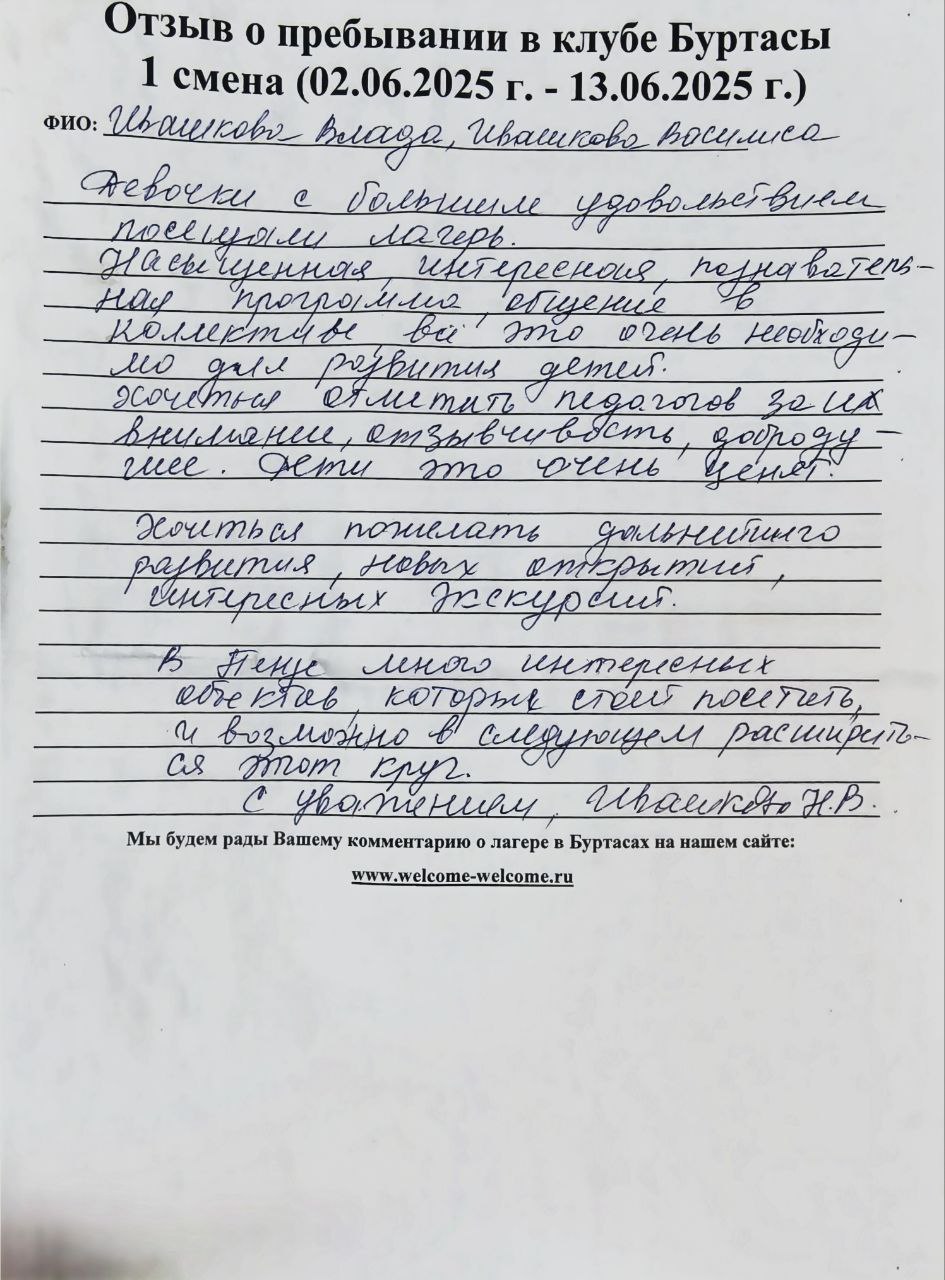 Отзыв о пребывании в клубе Буртасы
1 смена (02.06.2025 г. - 13.06.2025 г.)
ФИО: Ивашкова Влада, Ивашкова Василиса
Девочки с большим удовольствием
посещали лагерь.
Насыщенная, интересная, познаватель-
ная программа, общение в
коллективе, всё это очень необходи-
мо для развития детей.
Хочеться отметить педагогов за их
внимание, отзывчивость, доброду-
шие. Дети это очень ценят.
Хочеться пожелать дальнейшего
развития, новых открытий,
интересных экскурсий.
В Пензе много интересных
объектов, которые стоит посетить,
и возможно в следующем расширить-
ся этот круг.
С уважением, Ивашкова Н.В.
Мы будем рады Вашему комментарию о лагере в Буртасах на нашем сайте:
www.welcome-welcome.ru